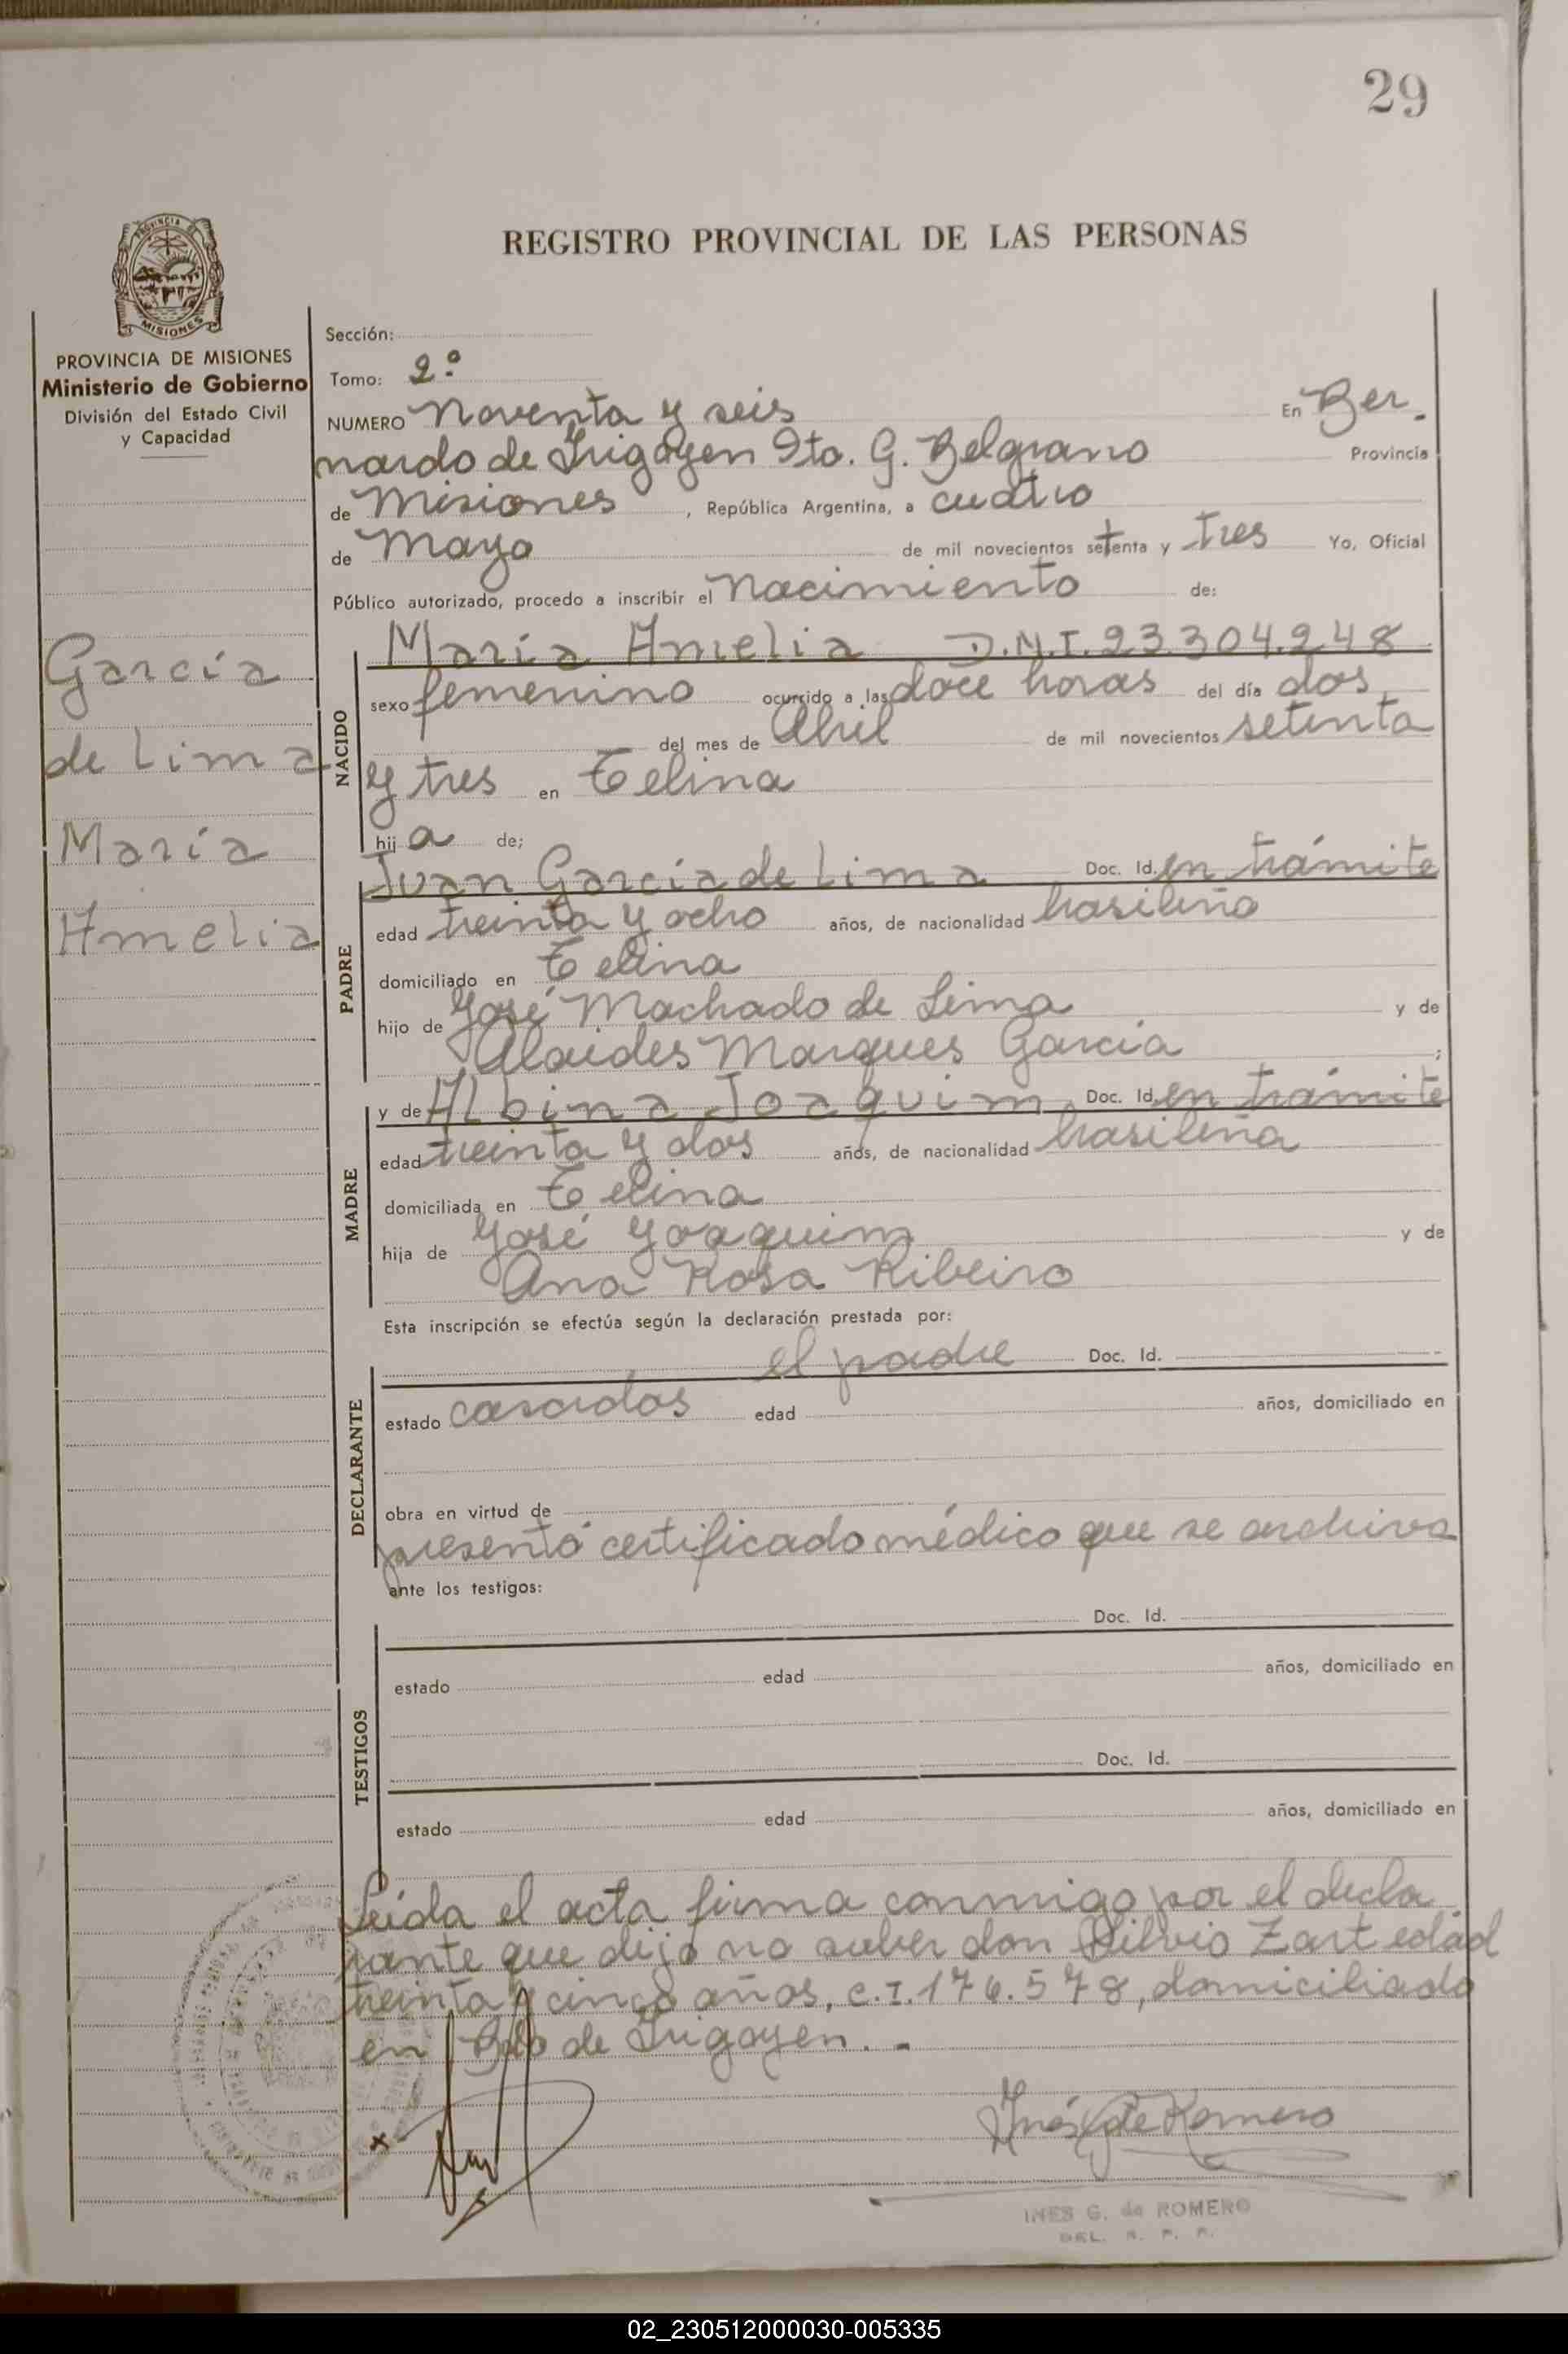 29
REGISTRO PROVINCIAL DE LAS PERSONAS
PROVINCIA DE MISIONES
MISIONES
PROVINCIA DE MISIONES
Ministerio de Gobierno
División del Estado Civil
y Capacidad
García
de Lima
María
Amelia
Sección:
Tomo: 2º
NUMERO Noventa y seis En Ber-
nardo de Irigoyen Dto. G. Belgrano Provincia
de Misiones, República Argentina, a cuatro
de Mayo de mil novecientos setenta y tres Yo, Oficial
Público autorizado, procedo a inscribir el Nacimiento de:
NACIDO
María Amelia D.N.I. 23.304.248
sexo femenino ocurrido a las doce horas del día dos
del mes de Abril de mil novecientos setenta
y tres en Celina
hija de;
PADRE
Juan García de Lima Doc. Id. en trámite
edad treinta y ocho años, de nacionalidad brasileño
domiciliado en Celina
hijo de José Machado de Lima y de
Alaides Marques García;
MADRE
y de Albina Joaquim Doc. Id. en trámite
edad treinta y dos años, de nacionalidad brasileña
domiciliada en Celina
hija de José Joaquim y de
Ana Rosa Ribeiro
Esta inscripción se efectúa según la declaración prestada por:
DECLARANTE
el padre Doc. Id.
estado casados edad años, domiciliado en
obra en virtud de
presentó certificado médico que se archiva
ante los testigos:
TESTIGOS
Doc. Id.
estado edad años, domiciliado en
Doc. Id.
estado edad años, domiciliado en
Leída el acta firma conmigo por el decla
rante que dijo no saber don Silvio Zart edad
treinta y cinco años, C.I. 176.578, domiciliado
en Bdo de Irigoyen.-
Inés G de Romero
INES G. de ROMERO
DEL. R. P. P.
02_230512000030-005335